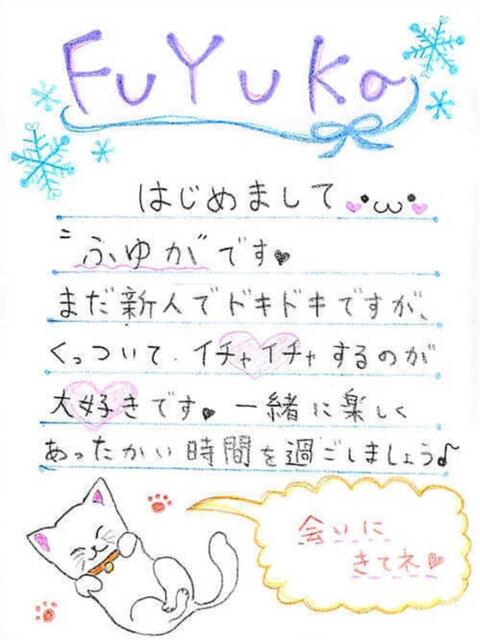 FuYuka
はじめまして
ふゆがです♥
まだ新人でドキドキですが、
くっついて、イチャイチャするのが
大好きです♥一緒に楽しく
あったかい時間を過ごしましょう♪
会いに
きてネ♥